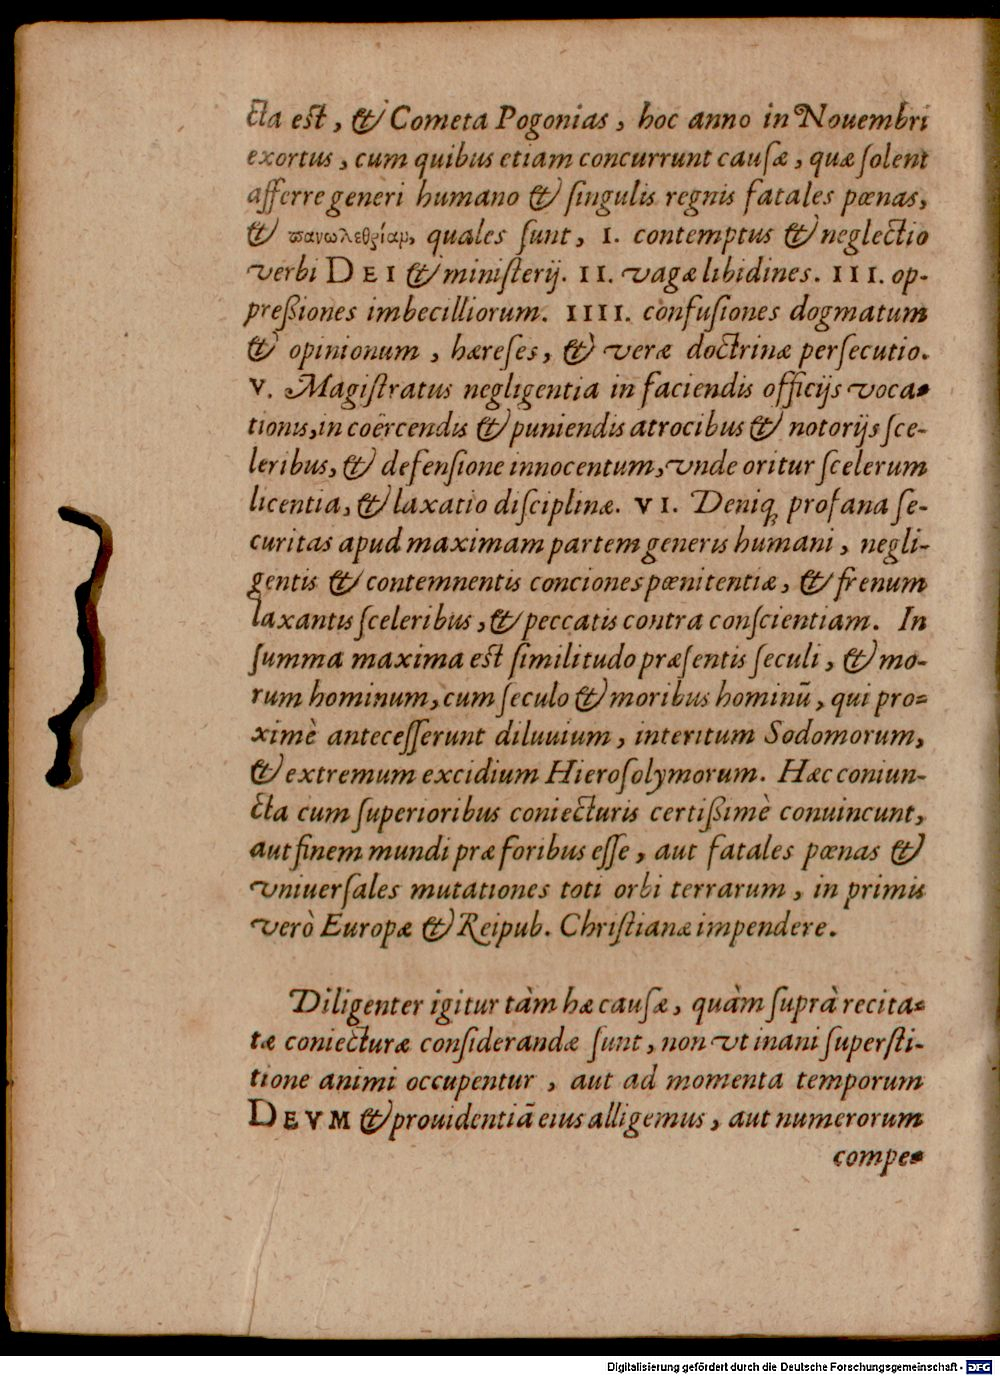 cta est, & Cometa Pogonias, hoc anno in Nouembri
exortus, cum quibus etiam concurrunt causæ, quæ solent
afferre generi humano & singulis regnis fatales pœnas,
& πανωλεθρίαμ, quales sunt, I. contemptus & neglectio
verbi DEI & ministerij. II. vagæ libidines. III. op-
preßiones imbecilliorum. IIII. confusiones dogmatum
& opinionum, hæreses, & veræ doctrinæ persecutio.
V. Magistratus negligentia in faciendis officijs voca-
tionis, in coërcendis & puniendis atrocibus & notorijs sce-
leribus, & defensione innocentum, vnde oritur scelerum
licentia, & laxatio disciplinæ. VI. Deniq; profana se-
curitas apud maximam partem generis humani, negli-
gentis & contemnentis conciones pœnitentiæ, & frenum
laxantis sceleribus, & peccatis contra conscientiam. In
summa maxima est similitudo præsentis seculi, & mo-
rum hominum, cum seculo & moribus hominū, qui pro-
ximè antecesserunt diluuium, interitum Sodomorum,
& extremum excidium Hierosolymorum. Hæc coniun-
cta cum superioribus coniecturis certißimè conuincunt,
aut finem mundi præ foribus esse, aut fatales pœnas &
vniuersales mutationes toti orbi terrarum, in primis
verò Europæ & Reipub. Christianæ impendere.
Diligenter igitur tàm hæ causæ, quàm suprà recita-
tæ coniecturæ considerandæ sunt, non vt inani supersti-
tione animi occupentur, aut ad momenta temporum
DEVM & prouidentiā eius alligemus, aut numerorum
compe-
Digitalisierung gefördert durch die Deutsche Forschungsgemeinschaft - DFG